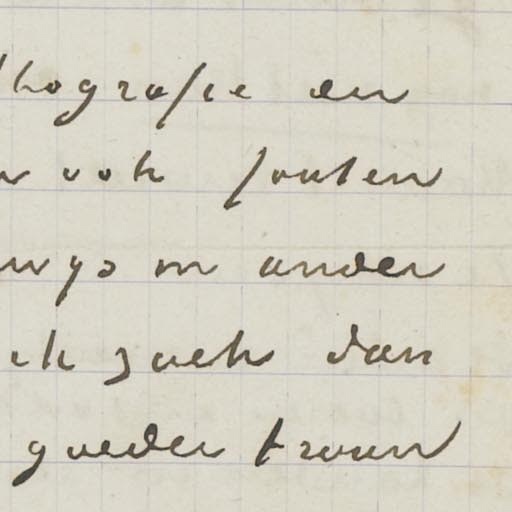 thografie en
ook fouten
wys in ander
ik zoek dan
goeder trouw